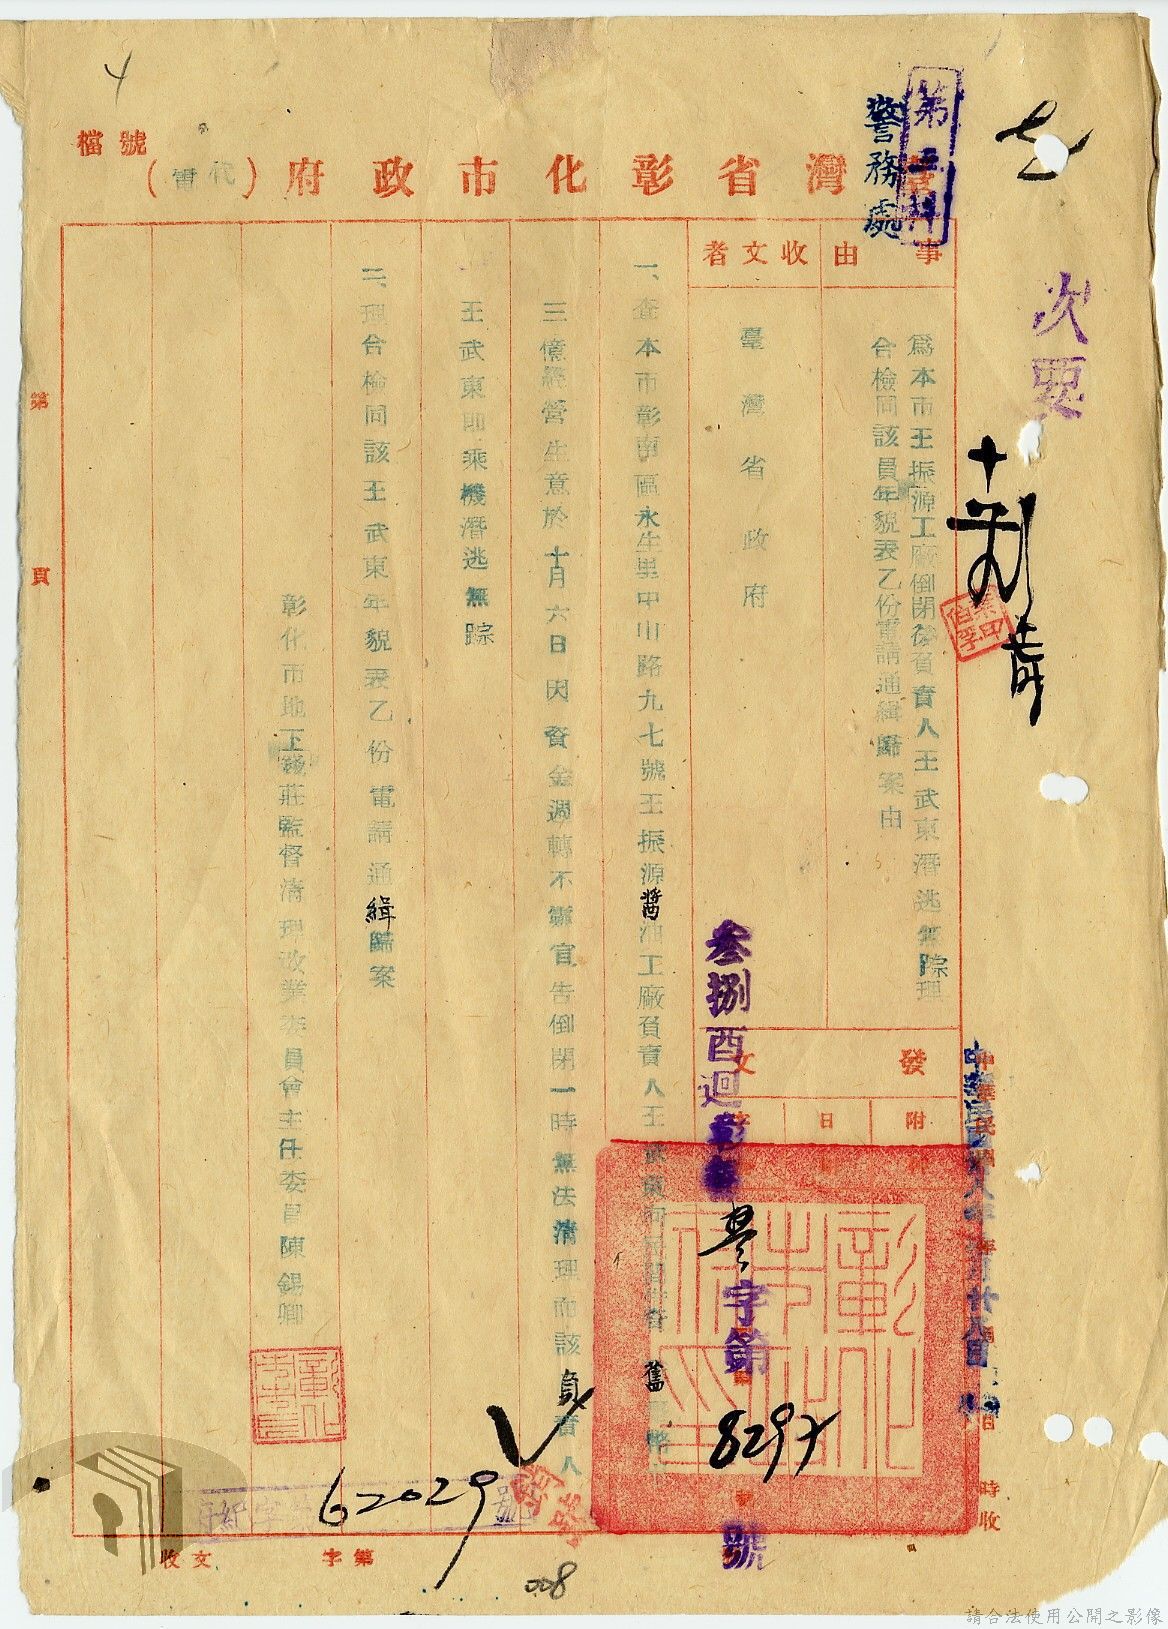 4
檔號
第三科
警務處
灣省彰化市政府(代電)
次要
事由
為本市王振源工廠倒閉後負責人王武東潛逃無踪理
合檢同該員年貌表乙份電請通緝歸案由
收文者
臺灣省政府
發文
附
日
字
叁捌酉迴彰
字第
號
時收
一、查本市彰南區永生里中山路九七號王振源醬油工廠負責人王武東向民間借貸舊
三億經營生意於十月六日因資金週轉不靈宣告倒閉一時無法清理而該負責人
王武東即乘機潛逃無踪
二、理合檢同該王武東年貌表乙份電請通緝歸案
彰化市地下錢莊監督清理改業委員會主任委員陳錫卿
第
頁
62029
號
收文
字第
008
請合法使用公開之影像